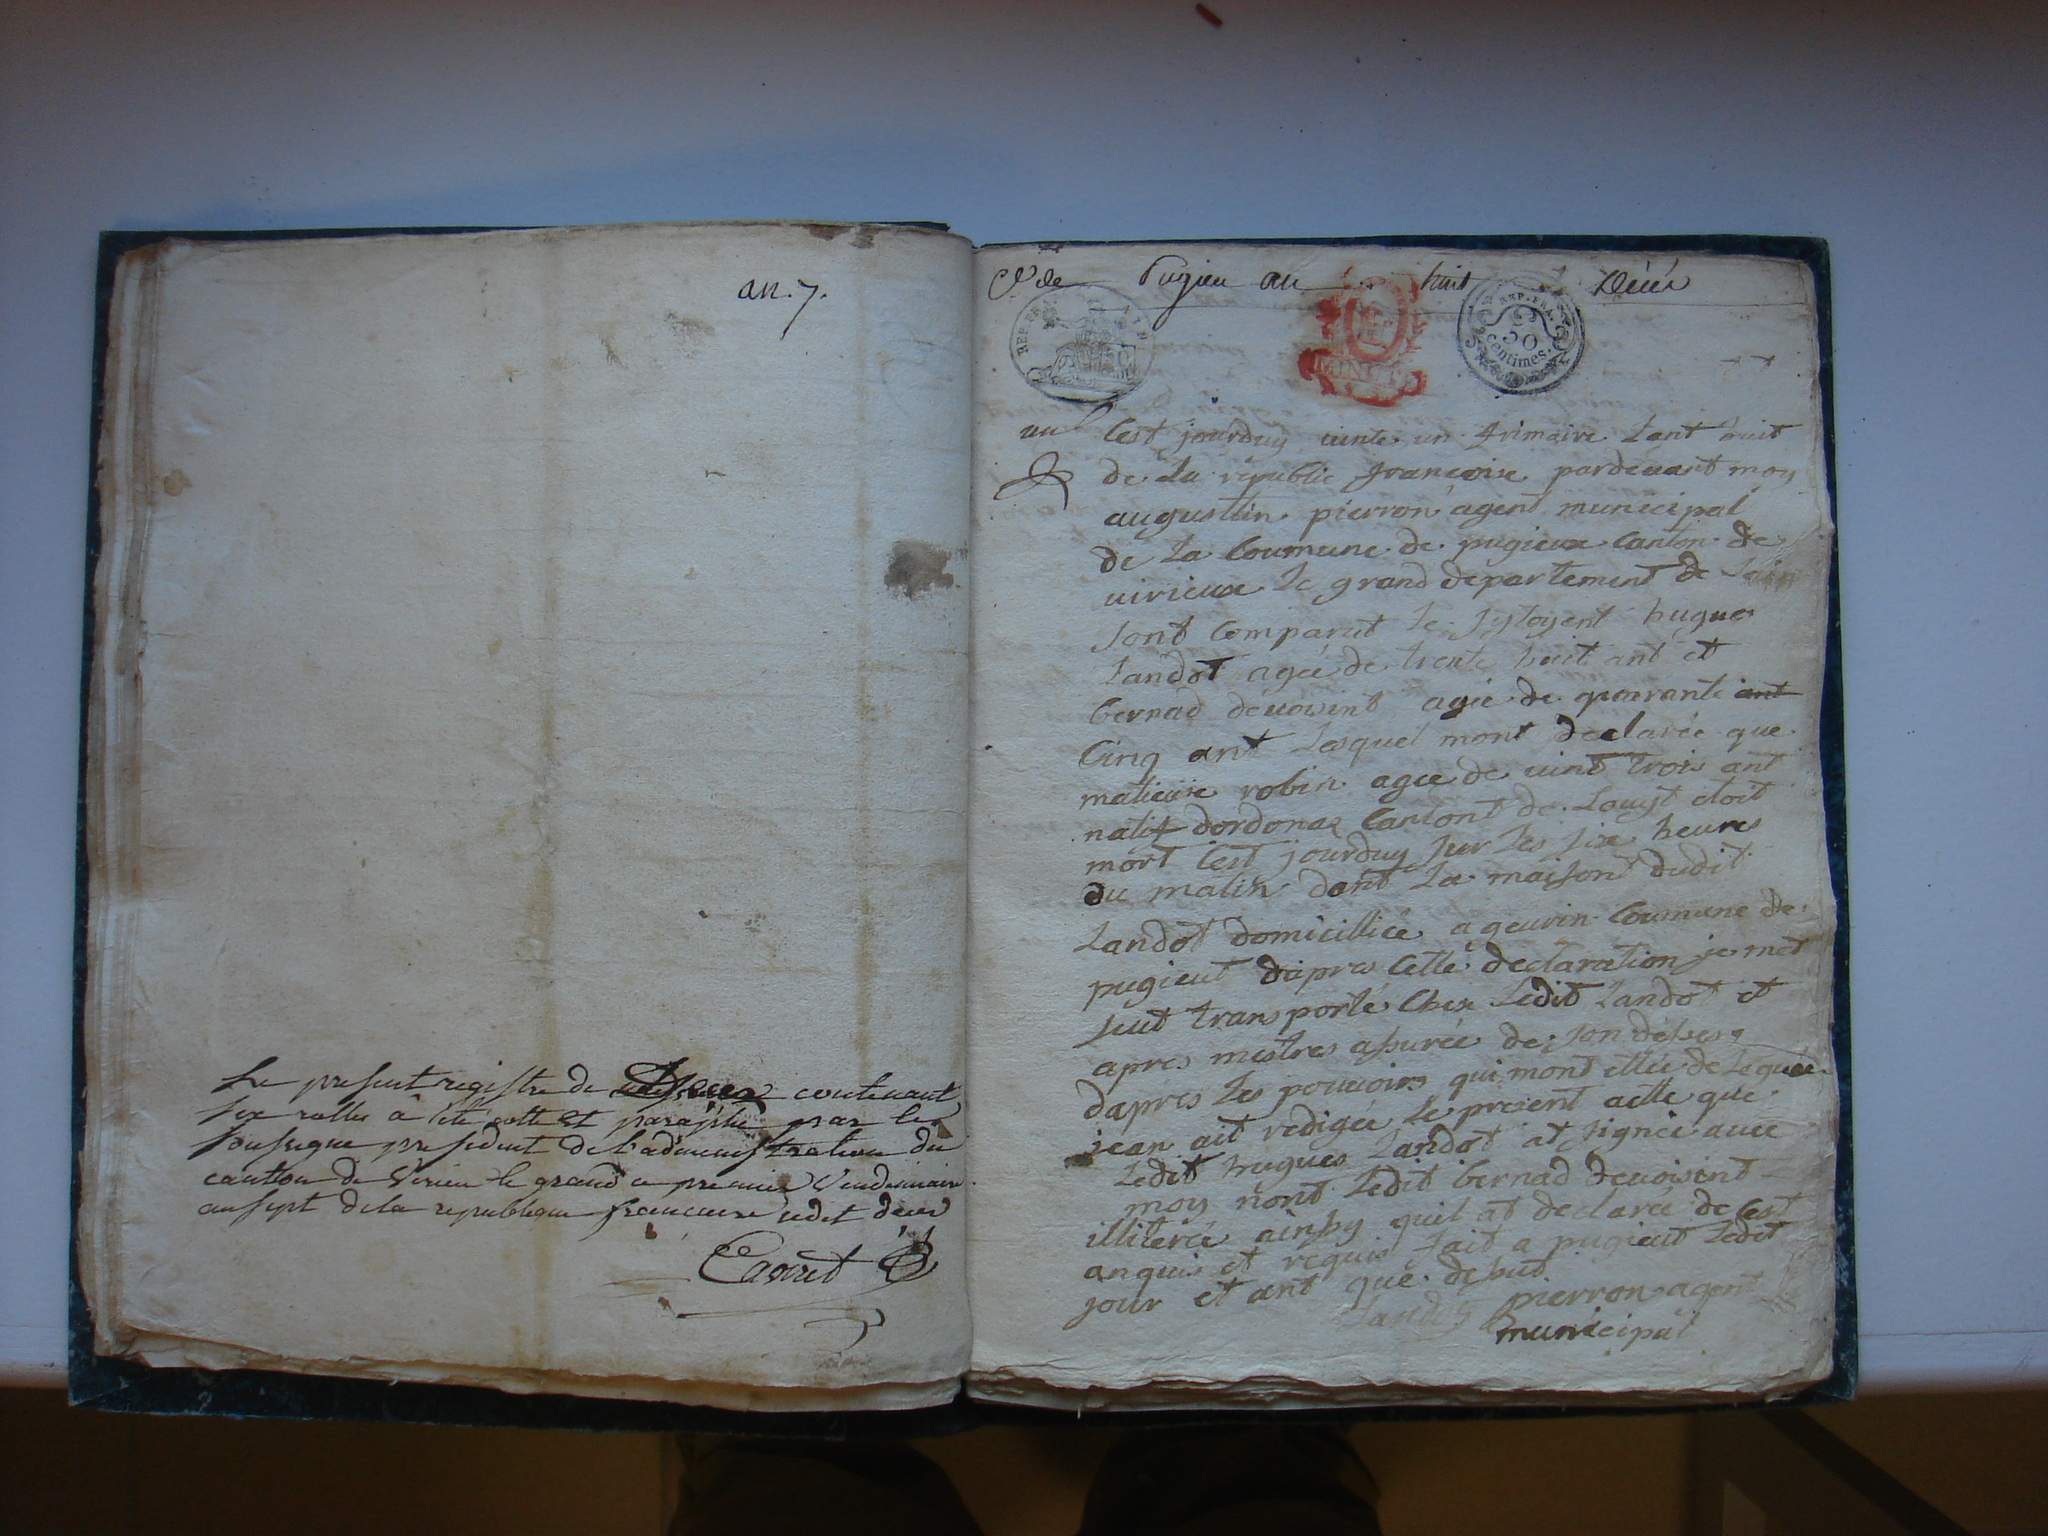 an. 7.
Le present registre de Deces contenant
six rolles à été cotté et paraphé par le
soussigne president de l'administration du
canton de Virieu le grand ce premier Vendemiaire
an sept de la republique francaise udit deces
Cde Pugieu an huit Décés
REP. FRA.
AIN
MINUTE
REP. FRA.
50
centimes.
un
Cest jourduy vinte un frimaire Lant huit
de La republic françoise pardevant moy
augustin pierron agent municipal
de La Coumune de pugieux Canton de
virieux Le grand departement de Lain
sont Comparut Le sytoyent hugue
Landot agée de trente huit ant et
bernad devoisint agée de quarante ant
Cinq ant Lesquel mont declarée que
matieure robin agée de vint trois ant
natif dordonaz Cantont de Lauyt etoit
mort Cest jourduy sur Les six heures
du matin dant La maison dudit
Landot domicilliée a geuvin Coumune de
pugieut dapres Cette declaration je met
suit transporté Chex Ledit Landot et
apres mestres assurée de son desses
dapres Les pouvoirs qui mont ettée deleguée
jean ait redigée Le present actte que
Ledit hugues Landot at signée avec
moy nont Ledit bernad devoisint
illiterée ainsy quil at declarée de Cest
anquis et requis fait a pugieut Ledit
jour et ant que desut
Landot pierron agent
municipal